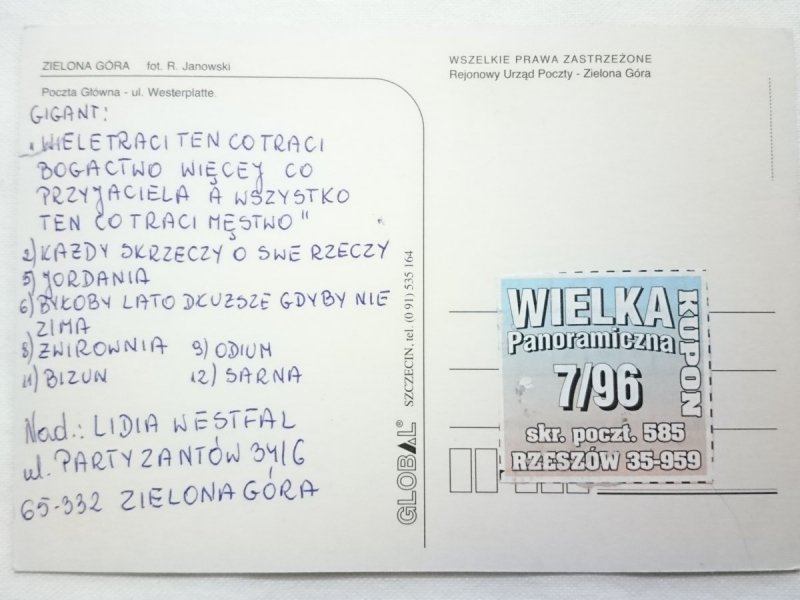 ZIELONA GÓRA fot. R. Janowski
Poczta Główna - ul. Westerplatte
GIGANT:
"WIELE TRACI TEN CO TRACI
BOGACTWO WIĘCEJ CO
PRZYJACIELA A WSZYSTKO
TEN CO TRACI MĘSTWO"
2) KAŻDY SKRZECZY O SWE RZECZY
5) JORDANIA
6) BYŁOBY LATO DŁUŻSZE GDYBY NIE
ZIMA
8) ŻWIROWNIA 9) ODIUM
11) BIZUN 12) SARNA
Nad.: LIDIA WESTFAL
ul. PARTYZANTÓW 34/6
65-332 ZIELONA GÓRA
GLOBAL® SZCZECIN, tel. (0 91) 535 164
WSZELKIE PRAWA ZASTRZEŻONE
Rejonowy Urząd Poczty - Zielona Góra
WIELKA
Panoramiczna
7/96
KUPON
skr. poczt. 585
RZESZÓW 35-959